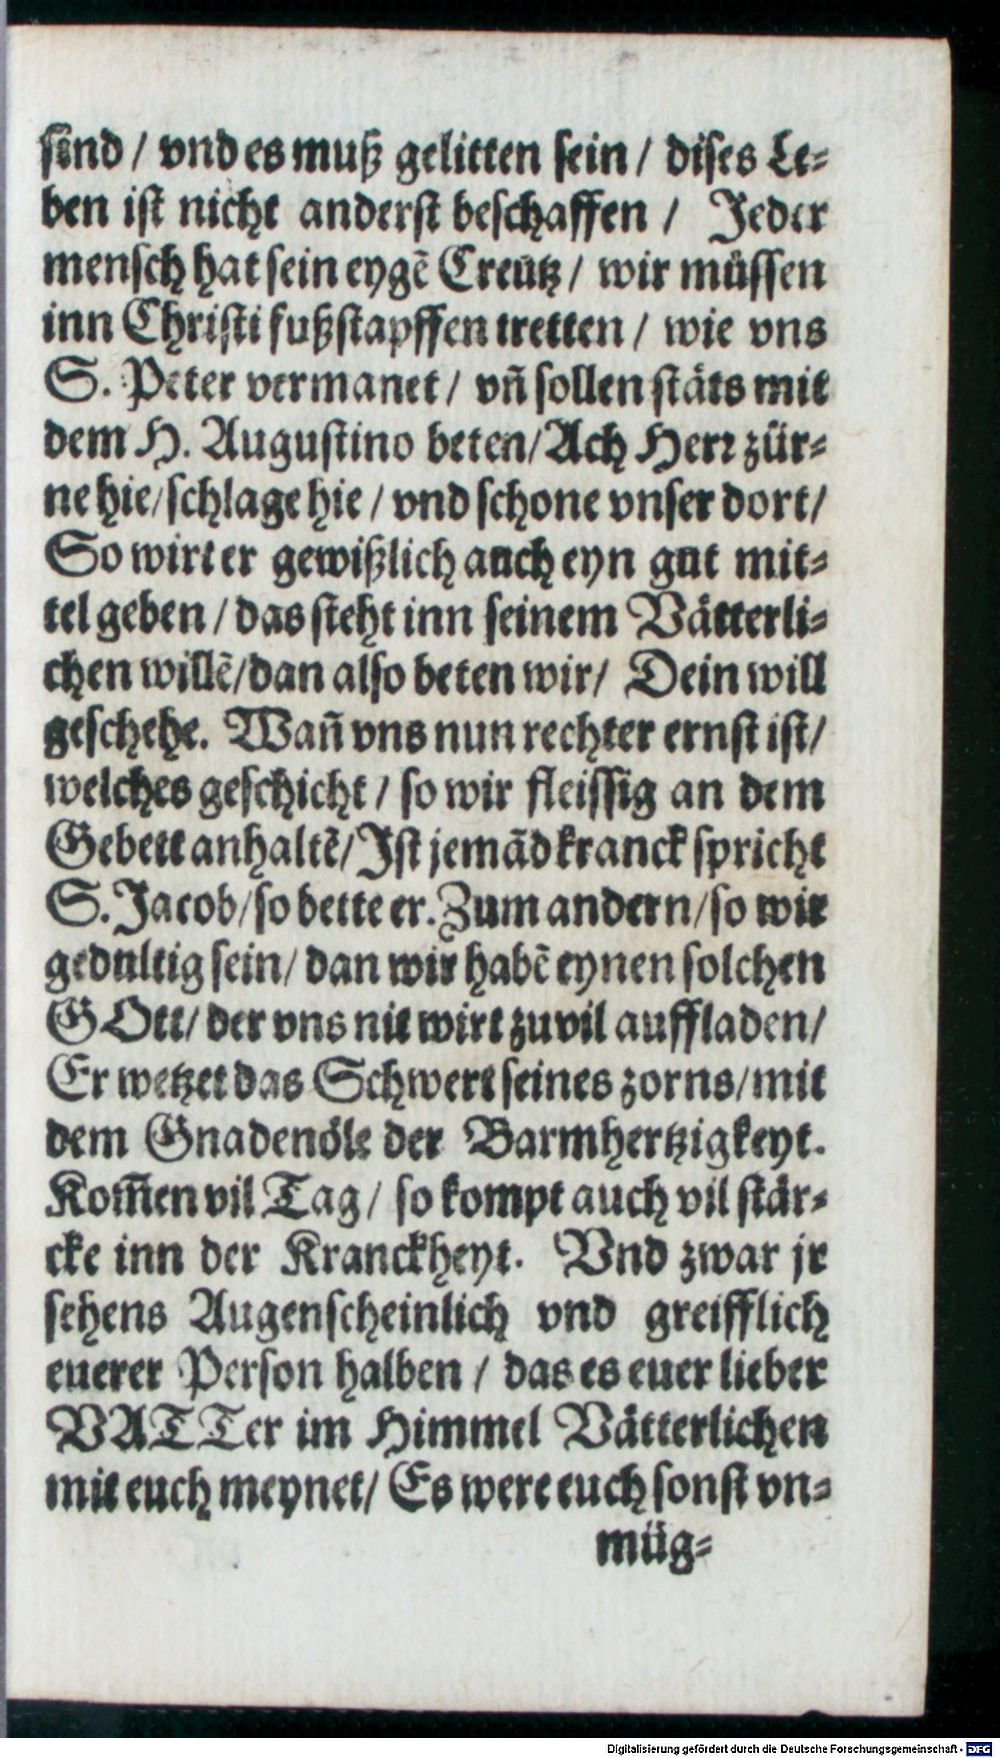 sind / vnd es muß gelitten sein / dises Le-
ben ist nicht anderst beschaffen / Jeder
mensch hat sein eygē Creutz / wir müssen
inn Christi fußstapffen tretten / wie vns
S. Peter vermanet / vñ sollen stäts mit
dem H. Augustino beten/ Ach Herr zür-
ne hie/ schlage hie / vnd schone vnser dort/
So wirt er gewißlich auch eyn gut mit-
tel geben / das steht inn seinem Vätterli-
chen willē/ dan also beten wir/ Dein will
geschehe. Wañ vns nun rechter ernst ist/
welches geschicht / so wir fleissig an dem
Gebett anhaltē/ Ist jemād kranck spricht
S. Jacob/ so bette er. Zum andern/ so wir
gedultig sein/ dan wir habē eynen solchen
GOtt/ der vns nit wirt zuvil auffladen/
Er wetzet das Schwert seines zorns/ mit
dem Gnadenöle der Barmhertzigkeyt.
Kom̃en vil Tag / so kompt auch vil stär-
cke inn der Kranckheyt. Vnd zwar jr
sehens Augenscheinlich vnd greifflich
euerer Person halben / das es euer lieber
VATTer im Himmel Vätterlichen
mit euch meynet/ Es were euch sonst vn-
müg-
Digitalisierung gefördert durch die Deutsche Forschungsgemeinschaft - DFG